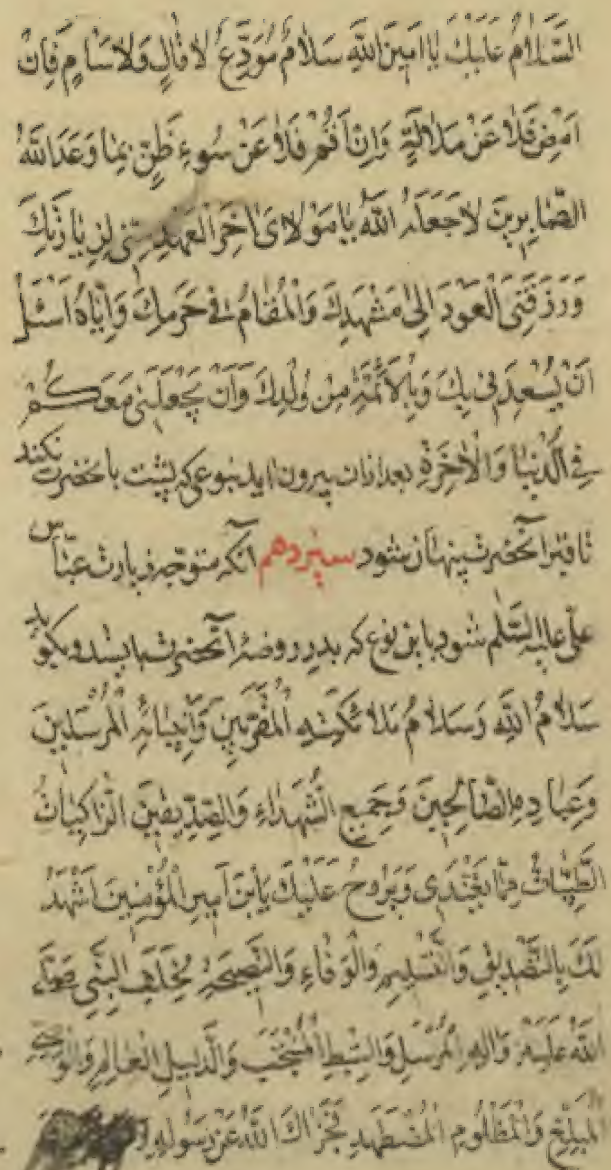 السَّلامُ عَلَيْكَ يا اَمينَ اللّهِ سَلامُ مُوَدِّعٍ لا قالٍ وَلا سَامٍ فَاِنْ
اَمْضِ فَلا عَنْ مَلالَةٍ وَاِنْ اُقِمْ فَلا عَنْ سُوءِ ظَنٍّ بِما وَعَدَ اللّهُ
الصّابِرينَ لا جَعَلَهُ اللّهُ يا مَوْلايَ اخِرَ الْعَهْدِ مِنّى لِزِيارَتِكَ
وَرَزَقَنِىَ الْعَوْدَ اِلى مَشْهَدِكَ وَالْمُقامَ فى حَرَمِكَ وَاِيّاهُ اَسْئَلُ
اَنْ يُسْعِدَنى بِكَ وَبِالْاَئِمَّةِ مِنْ وُلْدِكَ وَاَنْ يَجْعَلَنى مَعَكُمْ
فِى الدُّنْيا وَالْاخِرَةِ بعد ازان بيرون ايد بنوعى كه پشت بانحضرت نكند
تا قبر آنحضرت پنهان شود سيزدهم آنكه متوجه زيارت عبّاس
علىّ عليه السّلم شود باين نوع كه بدر روضهٔ آنحضرت بايستد و بگويد
سَلامُ اللّهِ وَسَلامُ مَلائِكَتِهِ الْمُقَرَّبينَ وَاَنْبِيائِهِ الْمُرْسَلينَ
وَعِبادِهِ الصّالِحينَ وَجَميعِ الشُّهَداءِ وَالصِّدّيقينَ الزّاكِياتُ
الطَّيِّباتُ فيما تَغْتَدى وَتَرُوحُ عَلَيْكَ يَا بْنَ اَميرِ الْمُؤْمِنينَ اَشْهَدُ
لَكَ بِالتَّصْديقِ وَالتَّسْليمِ وَالْوَفاءِ وَالنَّصيحَةِ لِخَلَفِ النَّبِىِّ صَلَّى
اللّهُ عَلَيْهِ وَالِهِ الْمُرْسَلِ وَالسِّبْطِ الْمُنْتَجَبِ وَالدَّليلِ الْعالِمِ وَالْوَصِىِّ
الْمُبَلِّغِ وَالْمَظْلُومِ الْمُضْطَهَدِ فَجَزاكَ اللّهُ عَنْ رَسُولِهِ